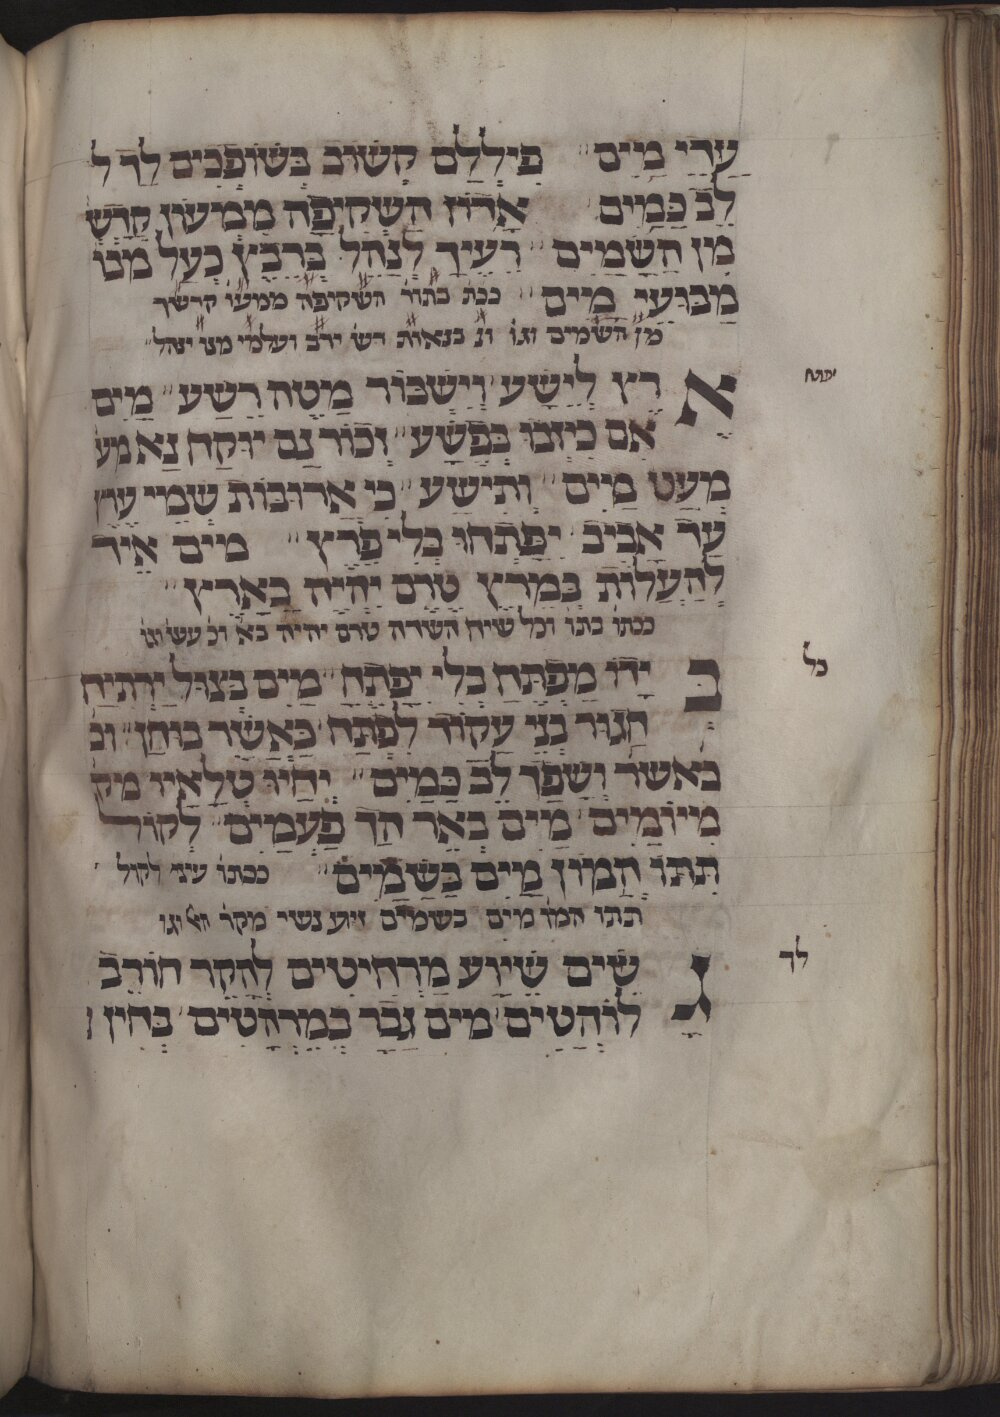 עֲרֵי מַיִם פִּילְלָם קְשׁוּב בְּשׁוֹפְכִים לְךָ ל
לֵב כַּמַּיִם אָדוֹן הַשְׁקִיפָה מִמְּעוֹן קָדְשְׁ
מִן הַשָּׁמַיִם רָעֶיךָ לְנַהֵל בְּרֶבֶץ כְּעַל מבו
מַבּוּעֵי מַיִם ככת בתור השקיפה ממעו קדשך
מן השמים וגו ונ בנאות דש ירב ועלמי מנו ינהל
א רֶץ לְיֶשַׁע וְיִשְׁבּוֹר מַטֵּה רֶשַׁע מַיִם
אִם כִּיזְּבוּ בְּפֶשַׁע וְכוֹר נַם יוּקַּח נָא מע
מְעַט מַיִם וְתִישַׁע כִּי אֲרוּבּוֹת שְׁמֵי עֶרֶץ
עַד אָבִיב יִפָּתְחוּ בְּלִי פֶרֶץ מַיִם אֵיד
לְהַעֲלוֹת בְּמֶרֶץ טֶרֶם יִהְיֶה בָאָרֶץ
ככתו בתו וכל שיח השדה טרם יהיה בא וכ עש וגו
כל
ב יָדוֹ מַפְתֵּחַ בְּלִי יִפְתַּח מַיִם בְּצוּל יַרְתִּיחַ
חִנּוּר בְּנֵי עָקוּד לִפְתַּח כַּאֲשֶׁר בּוּחַן וכ
כַּאֲשֶׁר וְשָׁפַךְ לֵב כַּמַּיִם יִחְיוּ טְלָאָיו מק
מִיּוֹמַיִם מַיִם בְּאַר הַךְ פַּעֲמַיִם לְקוֹל
תִּתּוֹ הֲמוֹן מַיִם בַּשָּׁמַיִם ככתו עיני לקול
תתו המו מים בשמים
לך
ג שִׂים שִׁיוַּע מַרְחִיטִים לְהָקֵר חוֹרֵב
לוֹהֲטִים מַיִם גָּבַר בִּמְרֶהָטִים בְּחִין